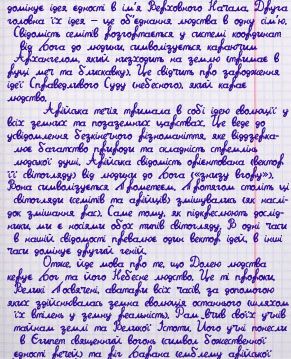 домінує ідея єдності в ім'я Верховного Начала. Друга
головна їх ідея – це об'єднання людства в одну сім'ю.
Свідомість семітів розгортається у системі координат
від Бога до людини, символізується караючим
Архангелом, який нисходить на землю (тримає в
руці меч та блискавку). Це свідчить про зародження
ідеї Справедливого Суду (небесного), який карає
людство.
Арійська течія тримала в собі ідею еволюції у
всіх земних та позаземних царствах. Це веде до
усвідомлення безкінечного різноманіття, яке віддзерка-
лює багатство природи та складність стремлінь
людської душі. Арійська свідомість орієнтована (вектор
її світогляду) від людини до Бога («знизу вгору»).
Вона символізується Прометеєм. Протягом століть ці
світогляди (семітів та арійців) змішувались (як наслі-
док змішання рас). Саме тому, як підкреслюють дослід-
ники, ми є носіями обох типів світогляду. В одні часи
в нашій свідомості превалює один вектор ідей, в інші
часи домінує другий геній.
Отже, йде мова про те, що Долею людства
керує Бог та його Небесне людство. Це ті пророки,
Великі Посвячені, аватари всіх часів, за допомогою
яких здійснювалась земна еволюція останнього (шляхом
їх втілень у земну реальність). Рам вчив своїх учнів
тайнам землі та Великої Істоти. Його учні понесли
в Єгипет священний вогонь (символ божественної
єдності речей) та ріг Барана (емблему арійської